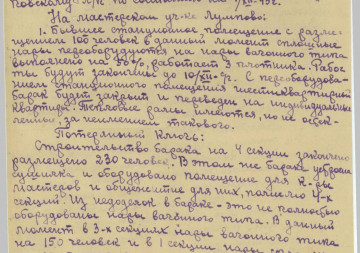 по состоянию на /XII-43г.
На мастерском уч-ке Лумпово:
1. Бывшее станционное, помещение с разме-
щением 106 человек в данный момент сплошные
нары переоборудуются на нары вагонного типа
выполнено на 50%, работает 3 плотника. Рабо-
ты будут закончены до 10/XII-43г. С переоборудова-
нием станционного помещения шестиквартирный
барак будет закрыт и переведен на индивидуальные
квартиры. Тепловые рамы имеются, но не остек-
лены за неимением такового.
Потерянный Ключ:
Строительство барака на 4 секции закончено
размещено 230 человек. В этом же бараке устроена
сушилка и оборудовано помещение для к-ры
мастеров и общежитие для них, помимо 4-х
секций. Из недоделок в бараке - это не полностью
оборудованы нары вагонного типа. В данный
момент в 3-х секциях нары вагонного типа
на 150 человек и в 1 секции нары